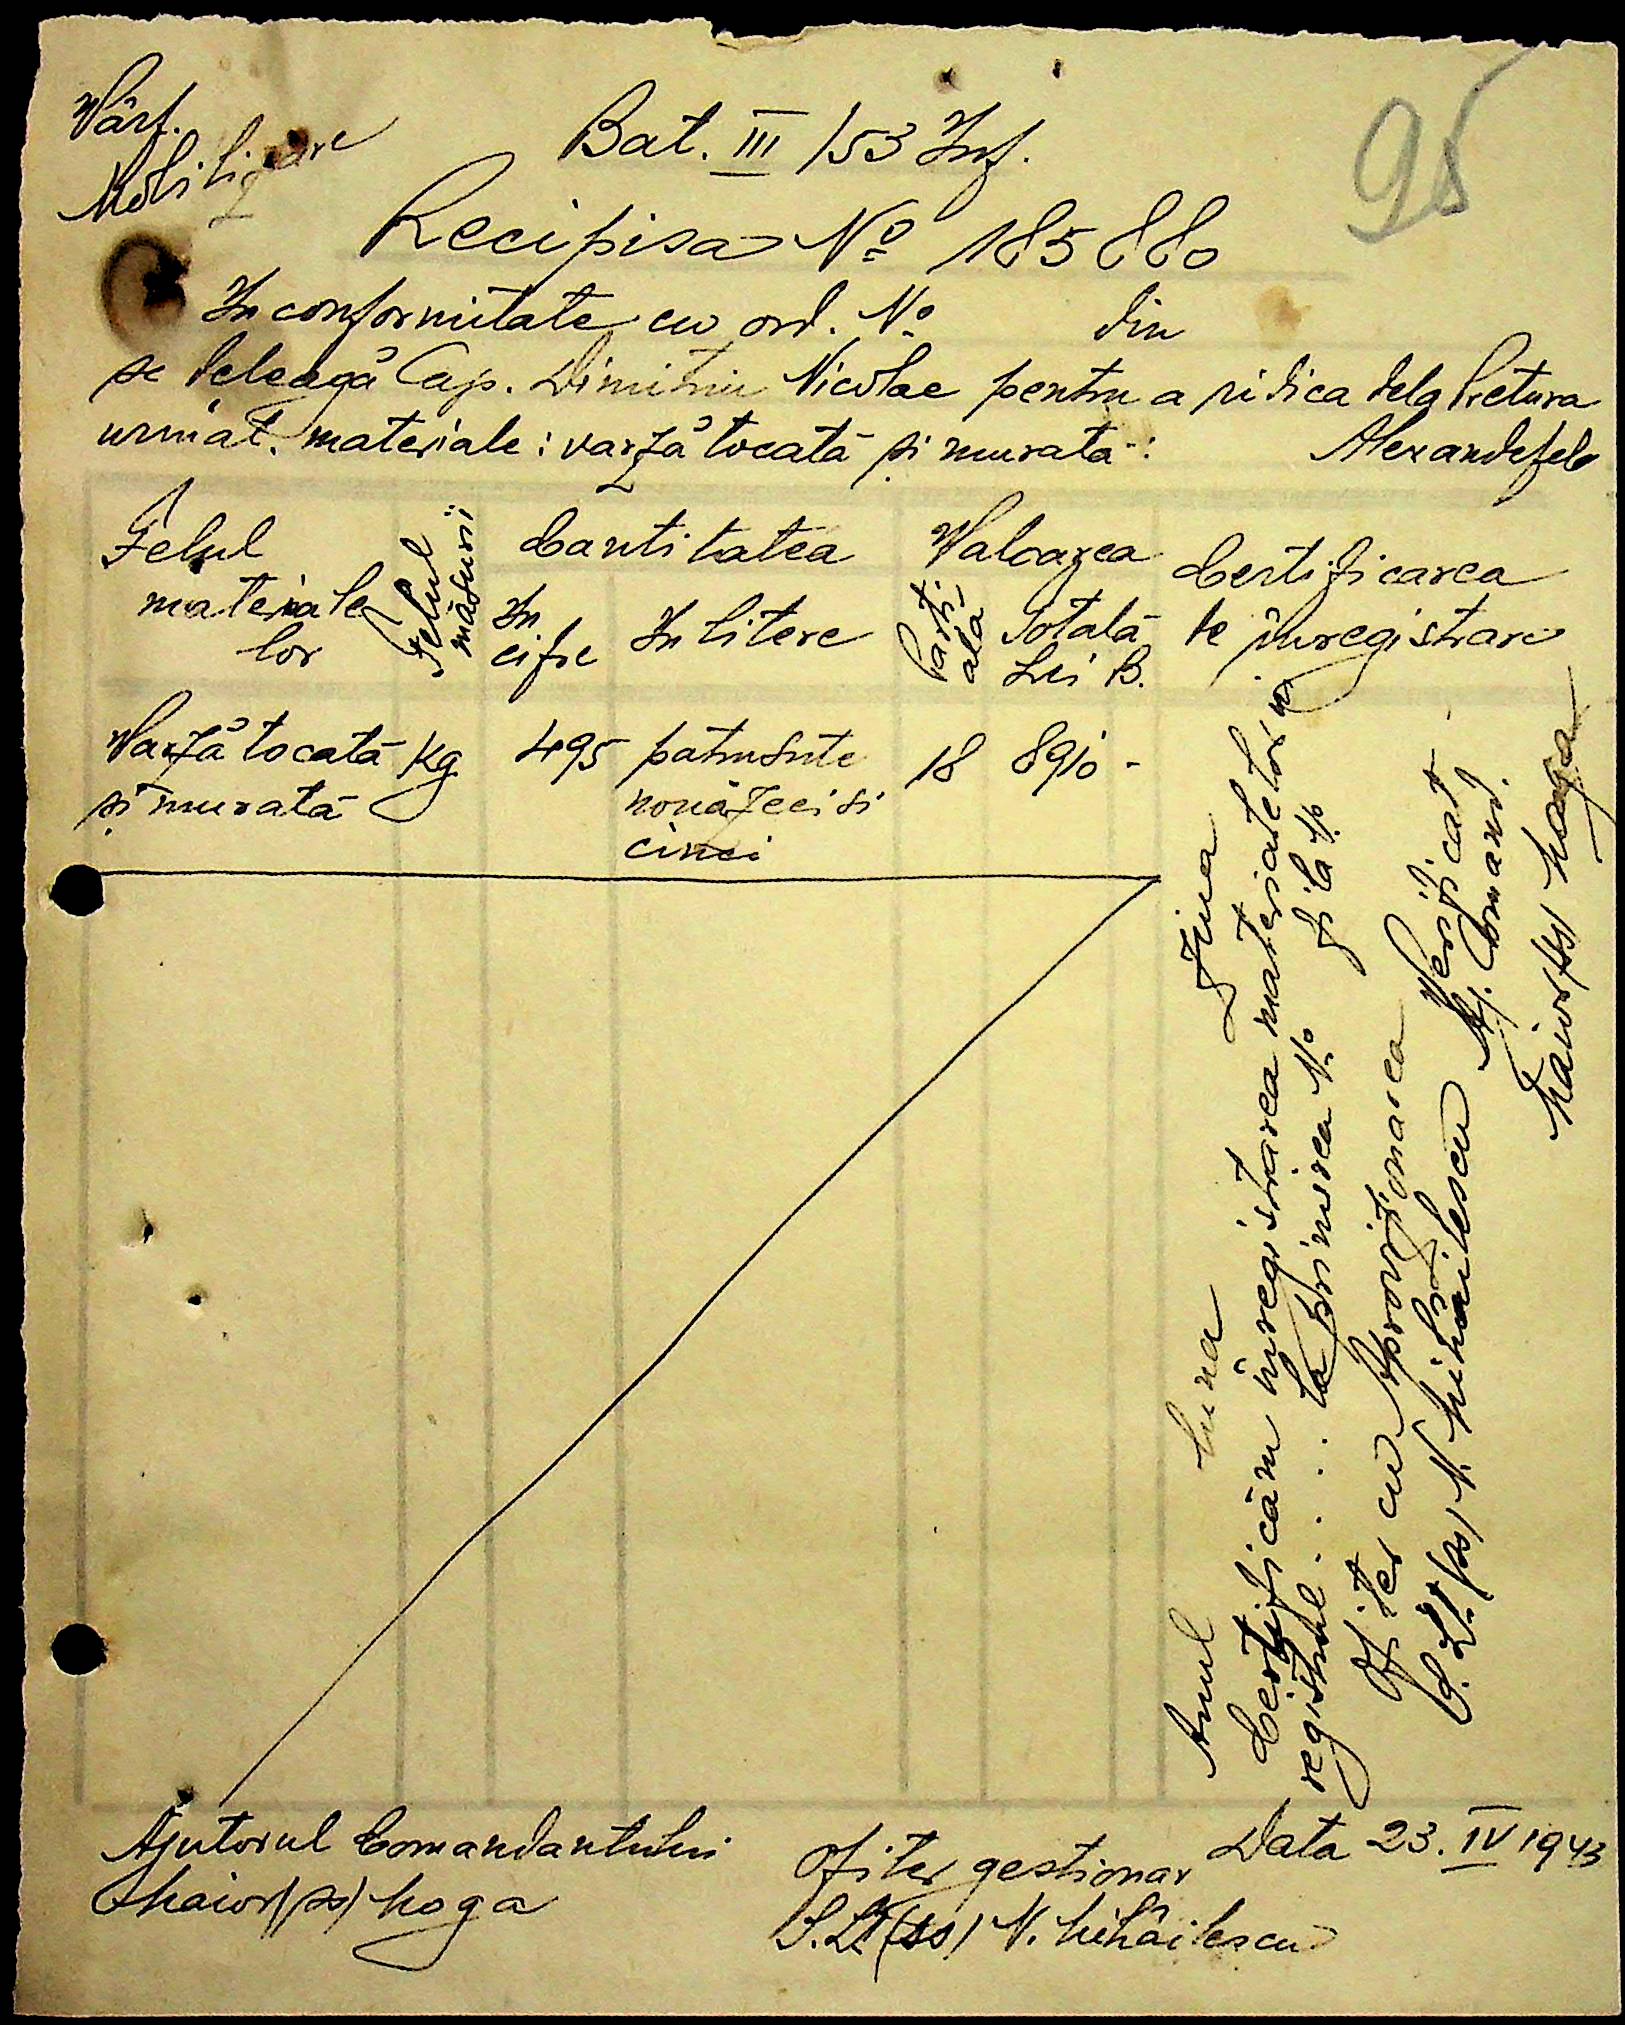 Vârf.
Mobilizare
95
Bat. III /53 Inf.
Recipisa No 185880
In conformitate cu ord. No din
se deleagă Cap. Dimitriu Nicolae pentru a ridica dela Pretura
urmat. materiale: varză tocată și murată: Alexandrfeld
Felul
materiale
lor
Felul
măsurii
Cantitatea
In
cifre
In litere
Valoarea
Parți
ală
Totală
Lei B.
Certificarea
de înregistrare
Varză tocată
și murată
Kg
495
patrusute
nouăzeci si
cinci
18
8910 -
Anul luna Ziua
Certificăm înregistrarea materialelor in
registrul . . . . la primirea No fila No
Ofițer cu Aprovizionarea
S. Lt. (ss) N. Mihăilescu
Verificat
Aj. Comand.
Maior (ss) Hoga
Ajutorul Comandantului
Maior (ss) Hoga
Ofițer gestionar
S. Lt. (ss) N. Mihăilescu
Data 23. IV 1943